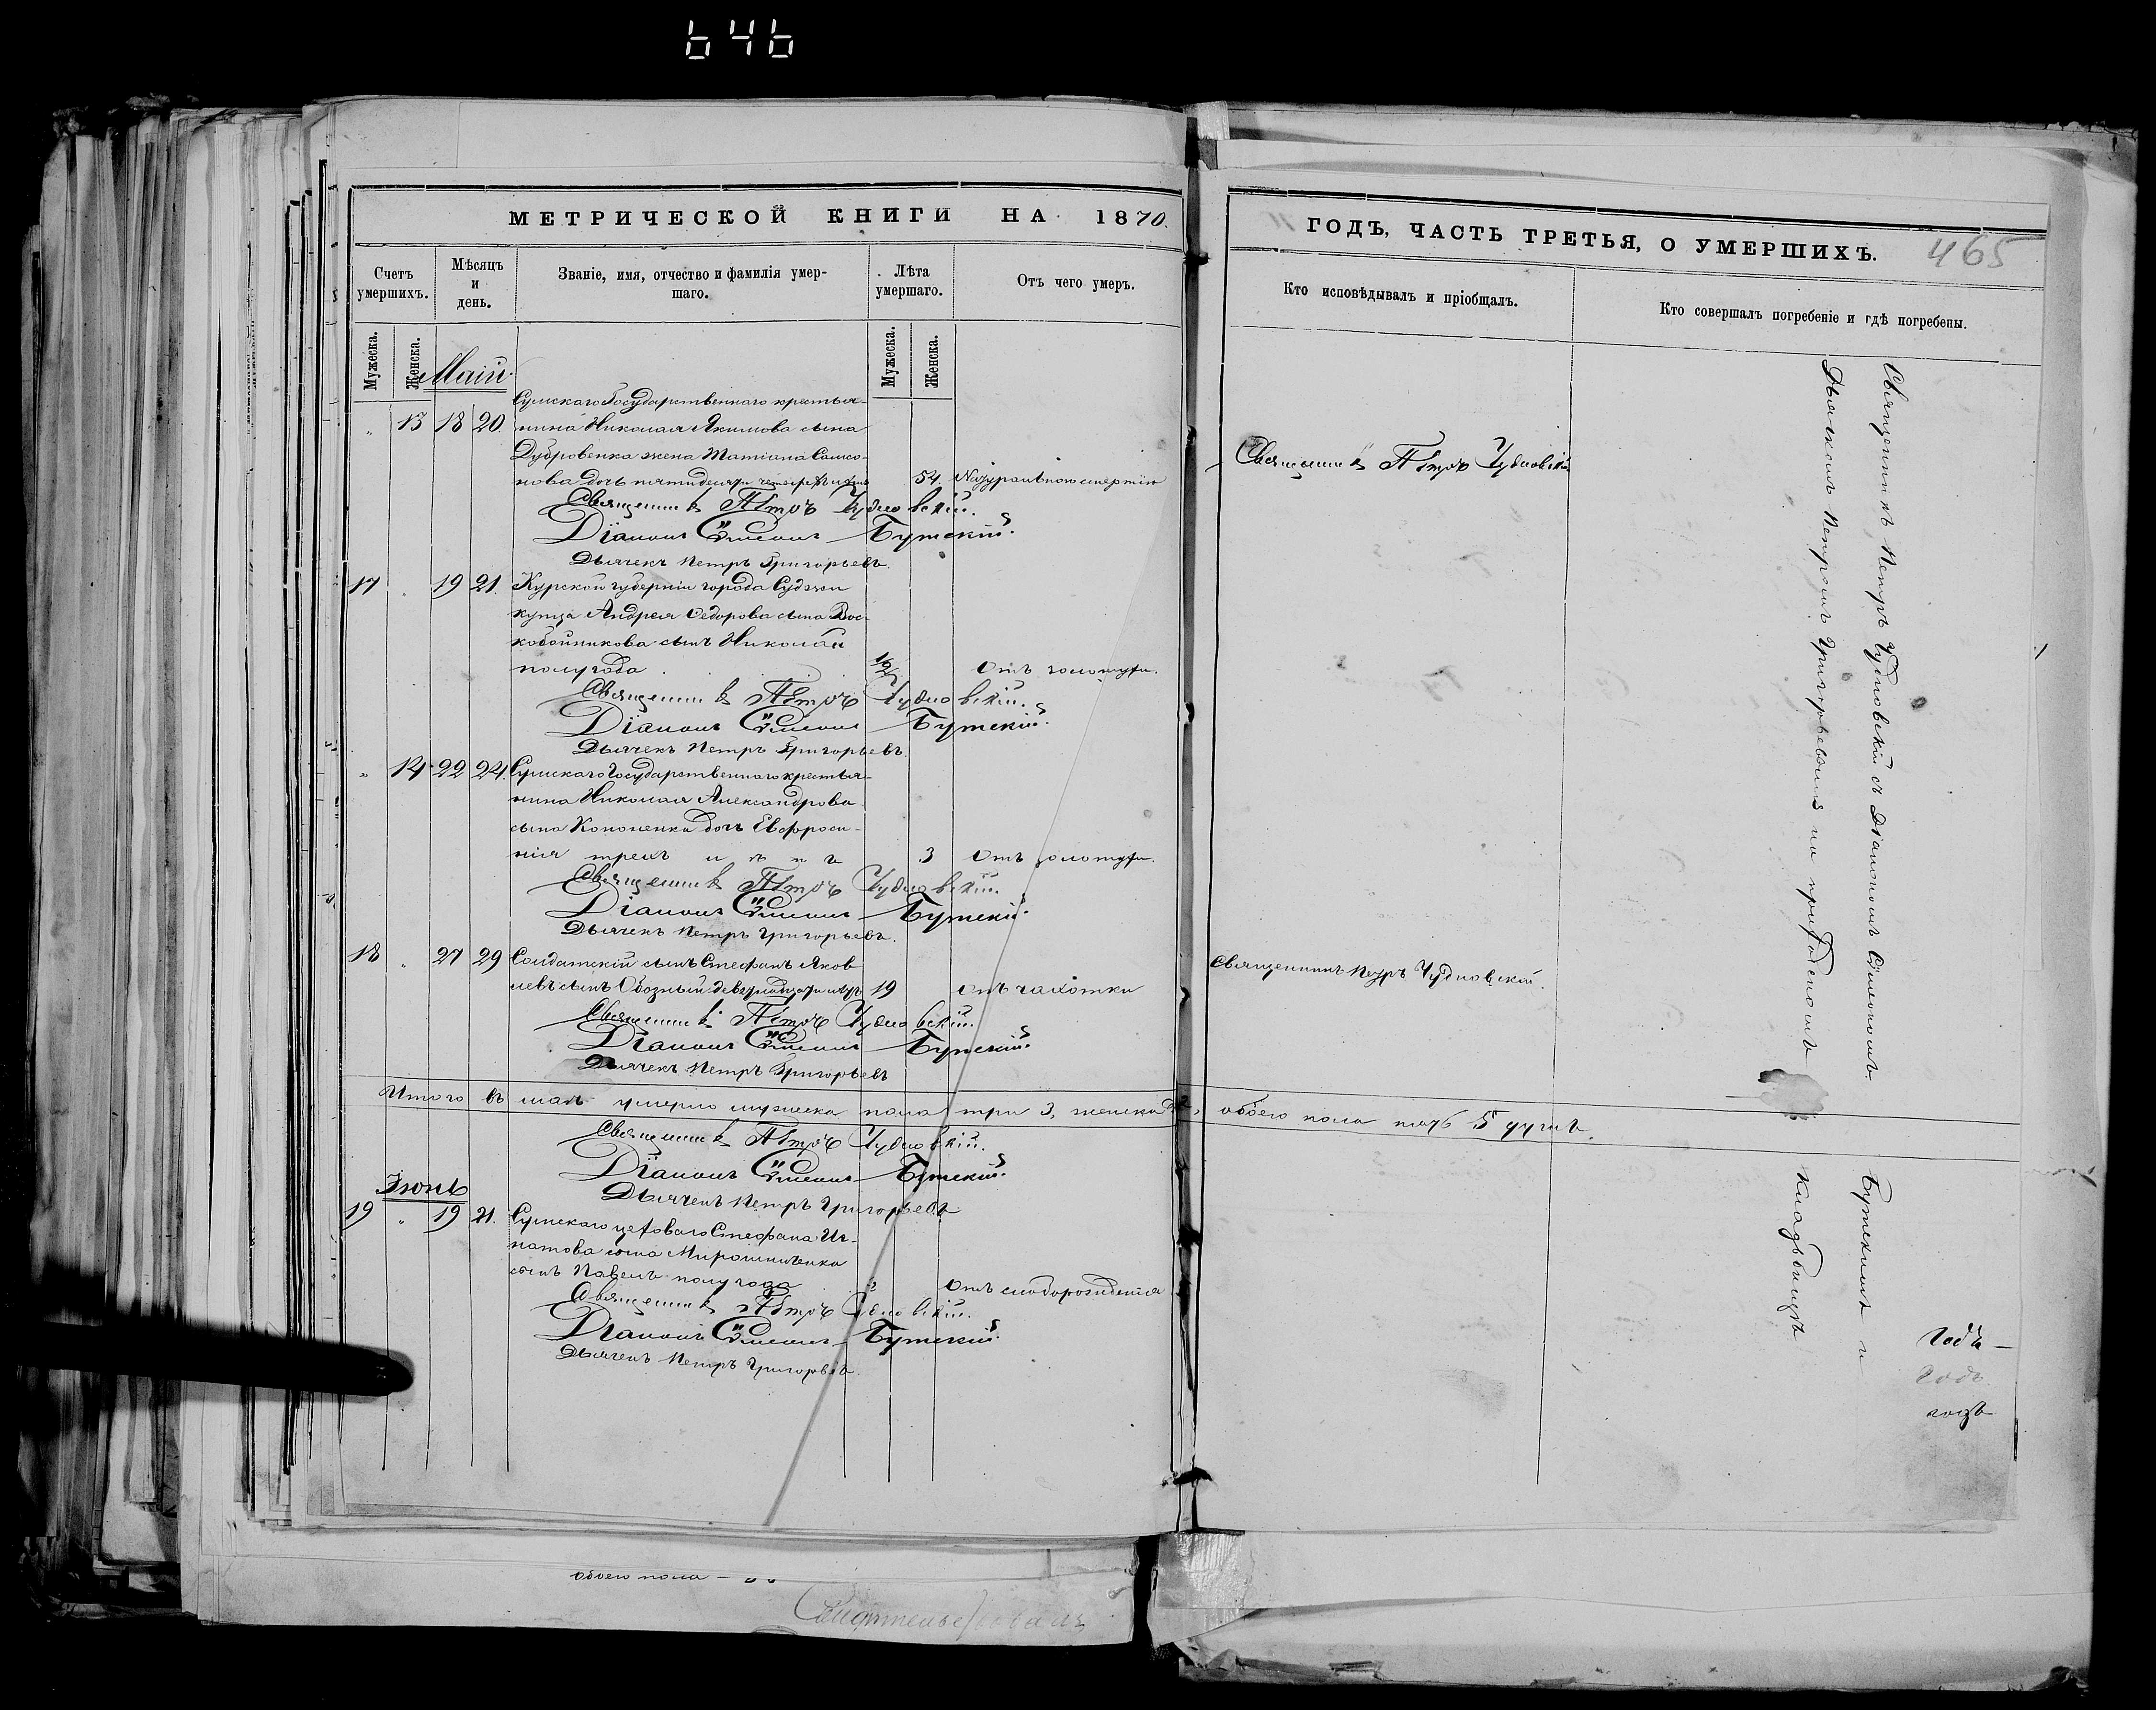 646
МЕТРИЧЕСКОЙ КНИГИ НА 1870.
Счетъ умершихъ.
Мѣсяцъ и день.
Званіе, имя, отчество и фамилія умер-
шаго.
Лѣта умершаго.
Отъ чего умеръ.
Мужеска.
Женска.
Мужеска.
Женска.
Май
Сумскаго Государственнаго крестья-
" 13 18 20. нина Николая Якимова сына
Дубровенка жена Татіана Самсо-
нова дочь пятидесяти четырехъ лѣтъ 54. Натуральною смертію
Священникъ Петръ Чудновскій.
Діаконъ Сѵмеонъ Бутскій.
Дьячекъ Петръ Григорьевъ.
17 " 19 21. Курской губерніи города Суджи
купца Андрея Ѳедорова сына Вос-
кобойникова сынъ Николай
полугода 1/2 Отъ золотухи.
Священникъ Петръ Чудновскій.
Діаконъ Сѵмеонъ Бутскій.
Дьячекъ Петръ Григорьевъ
" 14 22 24. Сумскаго Государственнаго крестья-
нина Николая Александрова
сына Кононенки дочь Евфроси-
нія трехъ лѣтъ 3 Отъ золотухи.
Священникъ Петръ Чудновскій.
Діаконъ Сѵмеонъ Бутскій.
Дьячекъ Петръ Григорьевъ.
18 " 27 29 Солдатскій сынъ Стефанъ Яков-
левъ сынъ Обозный девятнадцати лѣтъ 19 отъ чахотки
Священникъ Петръ Чудновскій.
Діаконъ Сѵмеонъ Бутскій.
Дьячекъ Петръ Григорьевъ
Итого въ маѣ умерло мужеска пола три 3, женска 2, обоего пола пять 5 душъ.
Священникъ Петръ Чудновскій.
Діаконъ Сѵмеонъ Бутскій.
Дьячекъ Петръ Григорьевъ
Іюнь
19 " 19 21. Сумскаго цеховаго Стефана Иг-
натова сына Мирошниченка
сынъ Павелъ полугода Отъ слаборожденія
Священникъ Петръ Чудновскій.
Діаконъ Сѵмеонъ Бутскій.
Дьячекъ Петръ Григорьевъ
обоего пола —
ГОДЪ, ЧАСТЬ ТРЕТЬЯ, О УМЕРШИХЪ.
465
Кто исповѣдывалъ и пріобщалъ.
Кто совершалъ погребеніе и гдѣ погребены.
Священникъ Петръ Чудновскій
Священникъ Петръ Чудновскій.
Священникъ Петръ Чудновскій съ Діакономъ Сѵмеономъ
Бутскимъ и
Дьячкомъ Петромъ Григорьевымъ на приходскомъ
кладбищѣ
Годъ —
Годъ
годъ